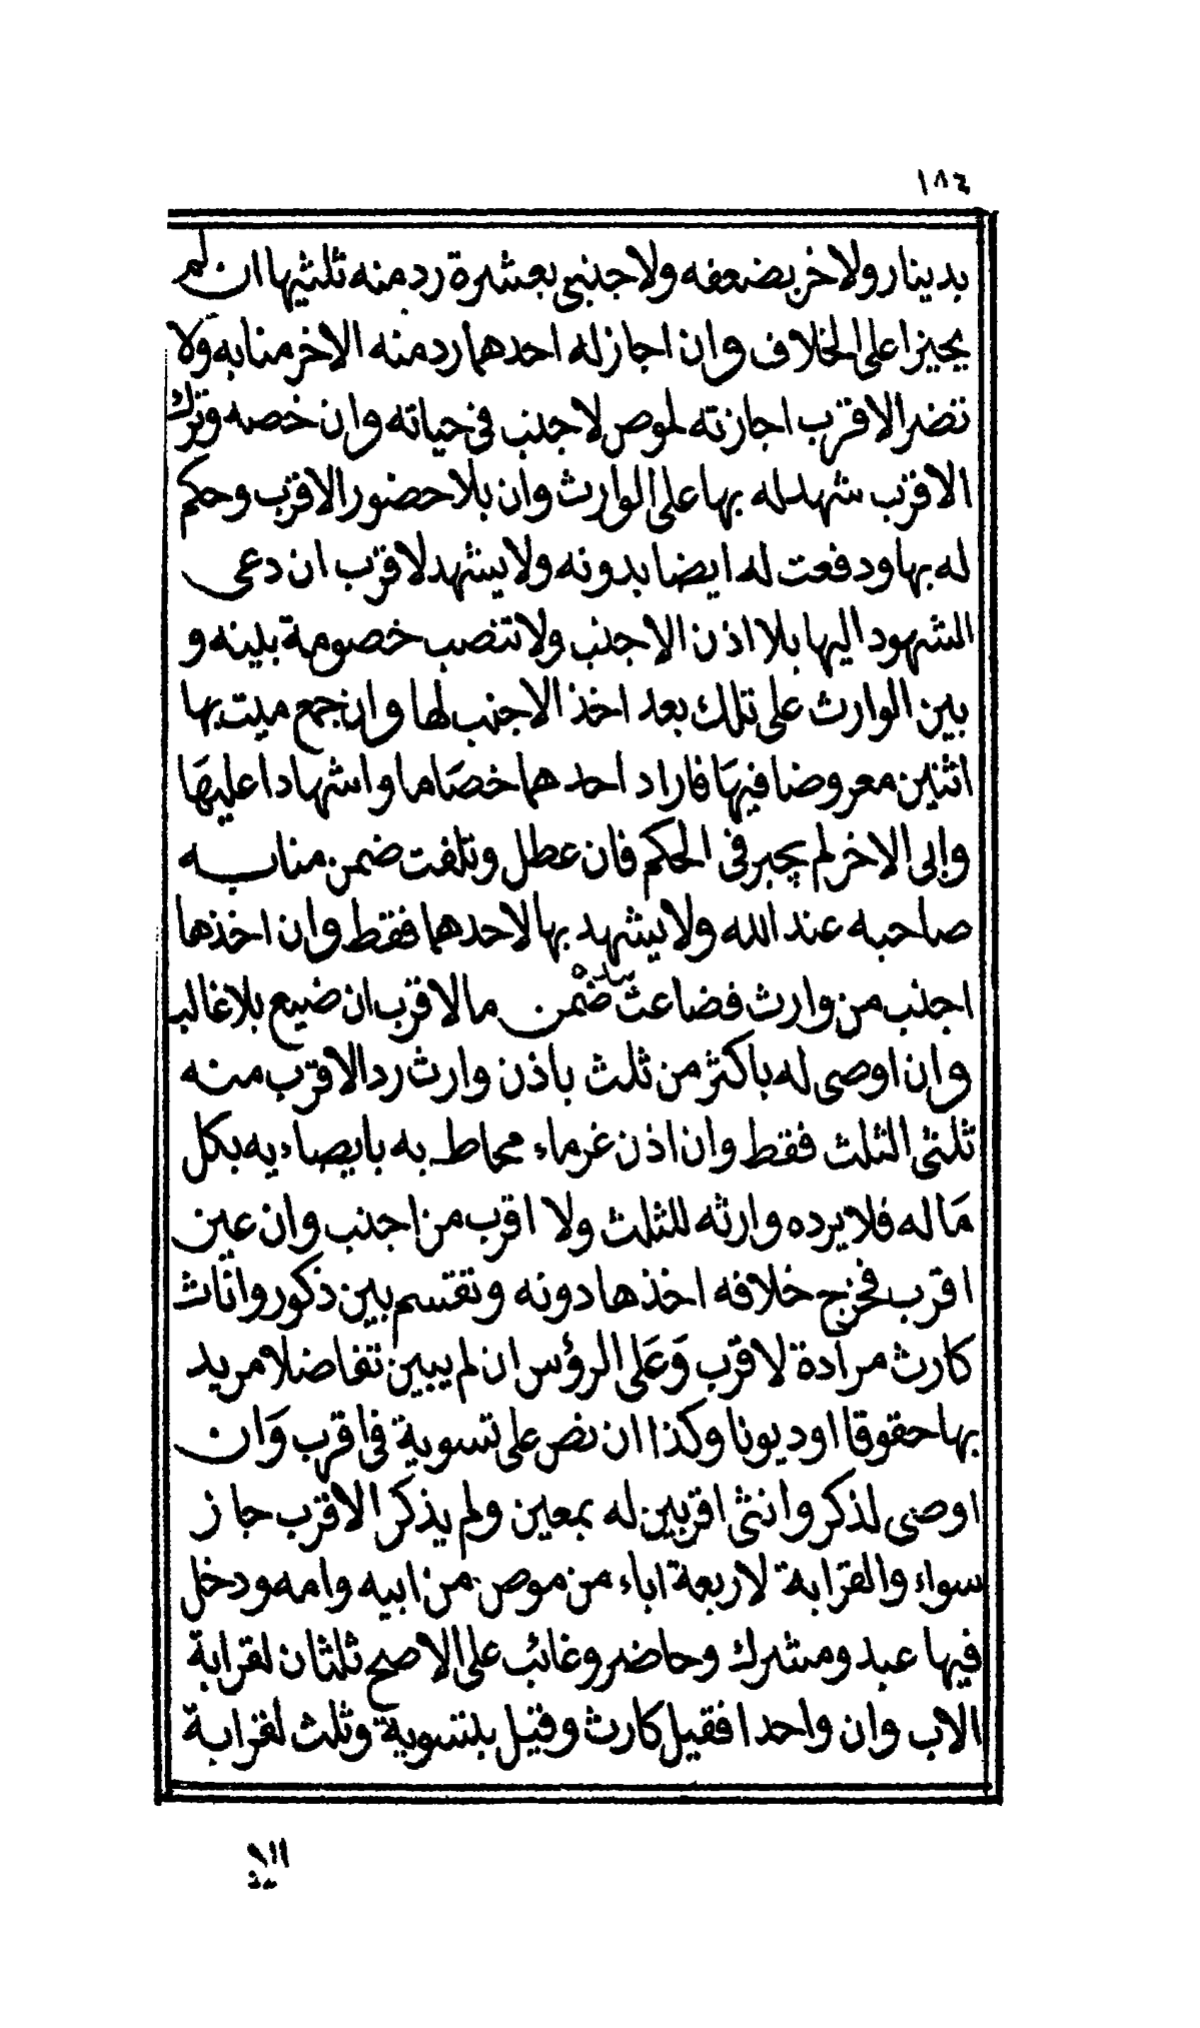 ١٨٤
بدينار ولاخر بضعفه ولاجنبي بعشرة رد منه ثلثيها ان لم
يجيزا على الخلاف وان اجاز له احدهما رد منه الاخر منابه ولا
تضر الاقرب اجازته لموص لاجنب في حياته وان خصه وترك
الاقرب شهد له بها على الوارث وان بلا حضور الاقرب وحكم
له بها ودفعت له ايضا بدونه ولا يشهد لاقرب ان دعى
الشهود اليها بلا اذن الاجنب ولا تنصب خصومة بينه و
بين الوارث على تلك بعد اخذ الاجنب لها وان جمع ميت بها
اثنين معروضا فيها فاراد احدهما خصاما واشهادا عليها
وابى الاخر لم يجبر في الحكم فان عطل وتلفت ضمن منابـــه
صاحبه عند الله ولا يشهد بها لاحدهما فقط وان اخذها
اجنب من وارث فضاعت ضمن ما لاقرب ان ضيع بلا غالب
وان اوصى له باكثر من ثلث باذن وارث رد الاقرب منه
ثلثي الثلث فقط وان اذن غرماء محاط به بايصاءيه بكل
ماله فلا يرده وارثه للثلث ولا اقرب من اجنب وان عين
اقرب فخرج خلافه اخذها دونه وتقتسم بين ذكور واناث
كارث مرادة لاقرب وعلى الرؤس ان لم يبين تفاضلا مريد
بها حقوقا او ديونا وكذا ان نص على تسوية في اقرب وان
اوصى لذكر وانثى اقربين له بمعين ولم يذكر الاقرب جاز
سواء والقرابة لاربعة اباء من موص من ابيه وامه ودخل
فيها عبد ومشرك وحاضر وغائب على الاصح ثلثان لقرابة
الاب وان واحدا فقيل كارث وقيل بتسوية وثلث لقرابة